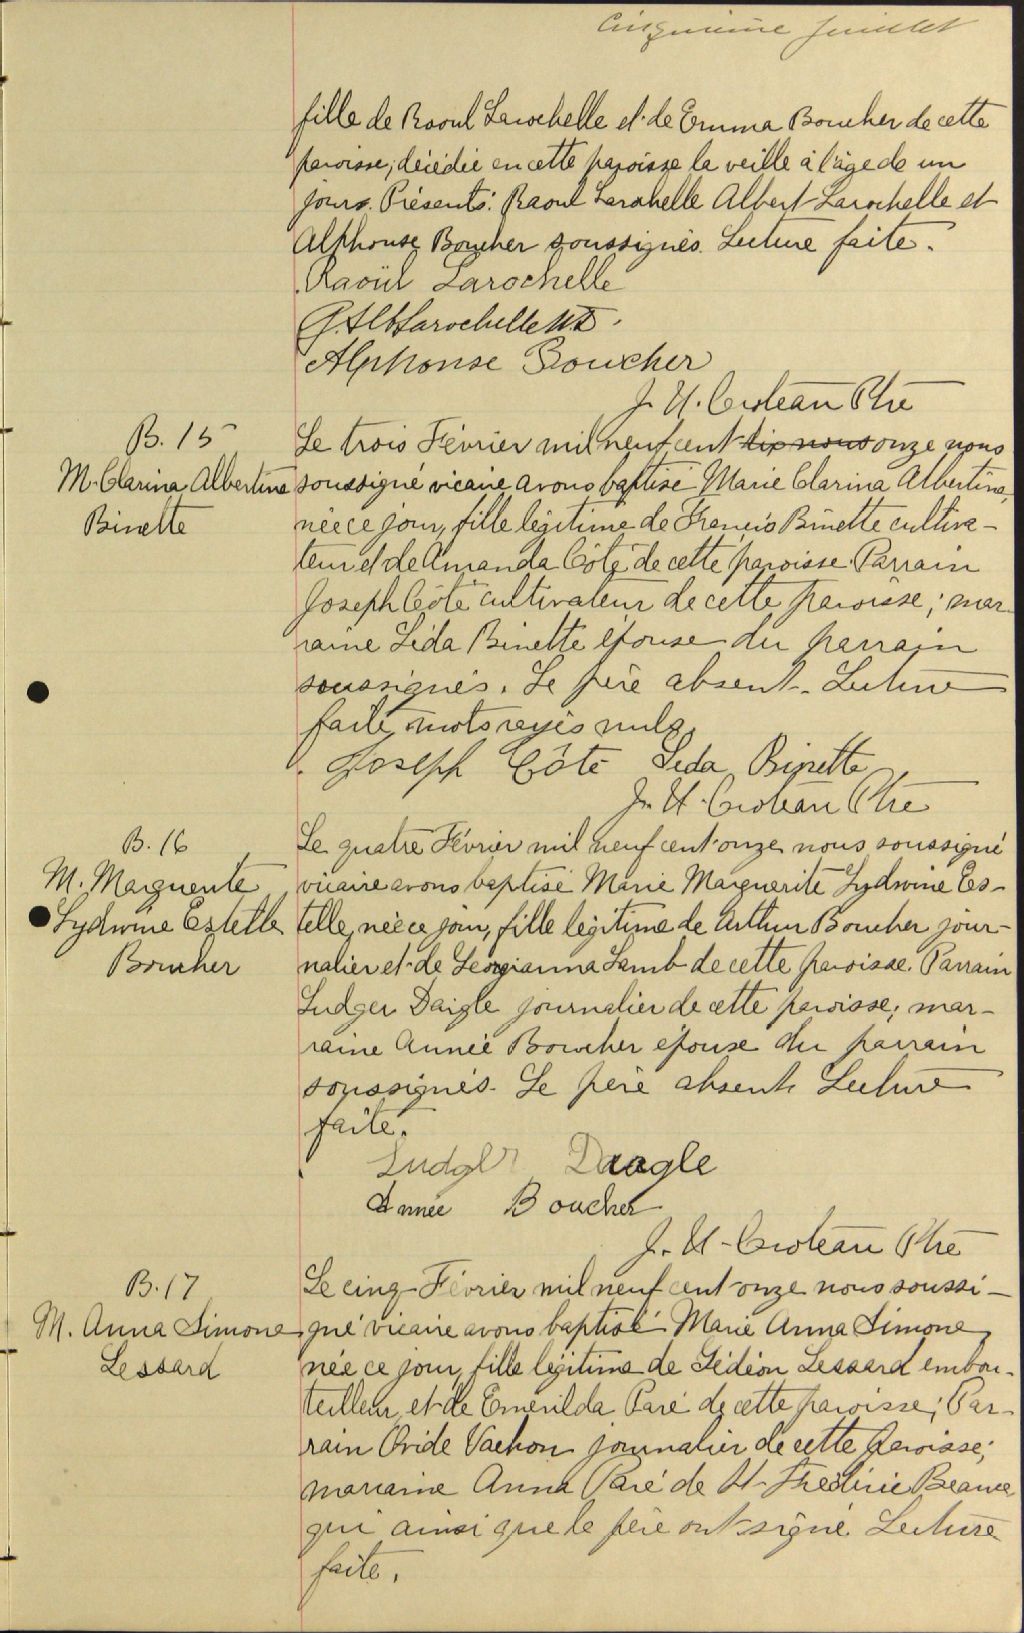 Cinquième feuillet
fille de Raoul Larochelle et de Emma Boucher de cette
paroisse, décédée en cette paroisse la veille à l'âge de un
jours. Présents: Raoul Larochelle Albert Larochelle et
Alphonse Boucher soussignés. Lecture faite.
Raoül Larochelle
G. Alb Larochelle
Alphonse Boucher
J. U. Croteau Ptre
B. 15
M. Clarina Albertine
Binette
Le trois Février mil neuf cent dix nous onze nous
soussigné vicaire avons baptisé Marie Clarina Albertine,
née ce jour, fille légitime de Francis Binette cultiva-
teur et de Amanda Côté de cette paroisse. Parrain
Joseph Côté cultivateur de cette paroisse; mar-
raine Léda Binette épouse du parrain
soussignés. Le père absent. Lecture
faite, mots rayés nuls.
Joseph Côté Léda Binette
J. U. Croteau Ptre
B. 16
M. Marguerite
Lydwine Estelle
Boucher
Le quatre Février mil neuf cent onze nous soussigné
vicaire avons baptisé Marie Marguerite Lydwine Es-
telle, née ce jour, fille légitime de Arthur Boucher jour-
nalier et de Georgianna Lamb de cette paroisse. Parrain
Ludger Daigle journalier de cette paroisse; mar-
raine Année Boucher épouse du parrain
soussignés. Le père absent. Lecture
faite.
Ludger Daagle
Année Boucher
J. U. Croteau Ptre
B. 17
M. Anna Simone
Lessard
Le cinq Février mil neuf cent onze nous soussi-
gné vicaire avons baptisé Marie Anna Simone,
née ce jour, fille légitime de Gédéon Lessard embou-
teilleur, et de Emerilda Paré de cette paroisse; Par-
rain Ovide Vachon journalier de cette paroisse;
marraine Anna Paré de St-Frédéric Beauce
qui ainsi que le père ont signé. Lecture
faite.